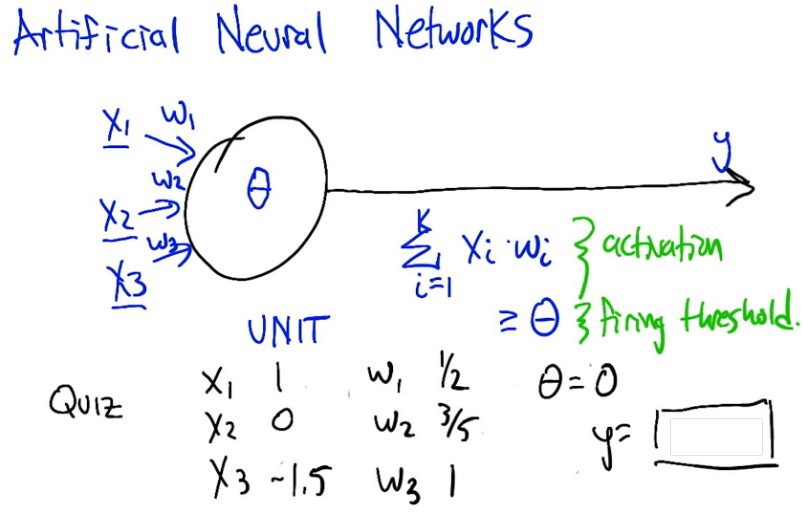 Artificial Neural Networks
X1 W1
W2 θ y
X2
W3
X3
K
∑ Xi·wi } activation
i=1
≥ θ } firing threshold.
UNIT
QUIZ
X1 1 W1 1/2 θ=0
X2 0 W2 3/5 y=
X3 -1.5 W3 1